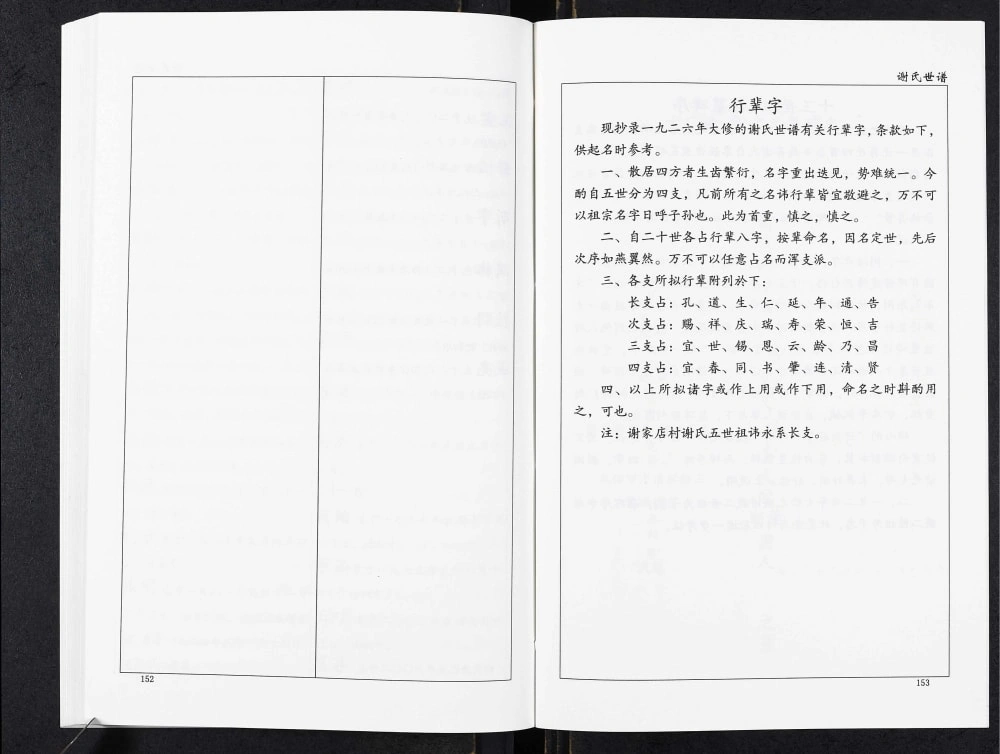 谢氏世谱
行辈字
现抄录一九二六年大修的谢氏世谱有关行辈字，条款如下，
供起名时参考。
一、散居四方者生齿繁衍，名字重出迭见，势难统一。今
酌自五世分为四支，凡前所有之名讳行辈皆宜敬避之，万不可
以祖宗名字日呼子孙也。此为首重，慎之，慎之。
二、自二十世各占行辈八字，按辈命名，因名定世，先后
次序如燕翼然。万不可以任意占名而浑支派。
三、各支所拟行辈附列於下：
长支占：孔、道、生、仁、延、年、通、告
次支占：赐、祥、庆、瑞、寿、荣、恒、吉
三支占：宜、世、锡、恩、云、龄、乃、昌
四支占：宜、春、同、书、肇、连、清、贤
四、以上所拟诸字或作上用或作下用，命名之时斟酌用
之，可也。
注：谢家店村谢氏五世祖讳永系长支。
152
153